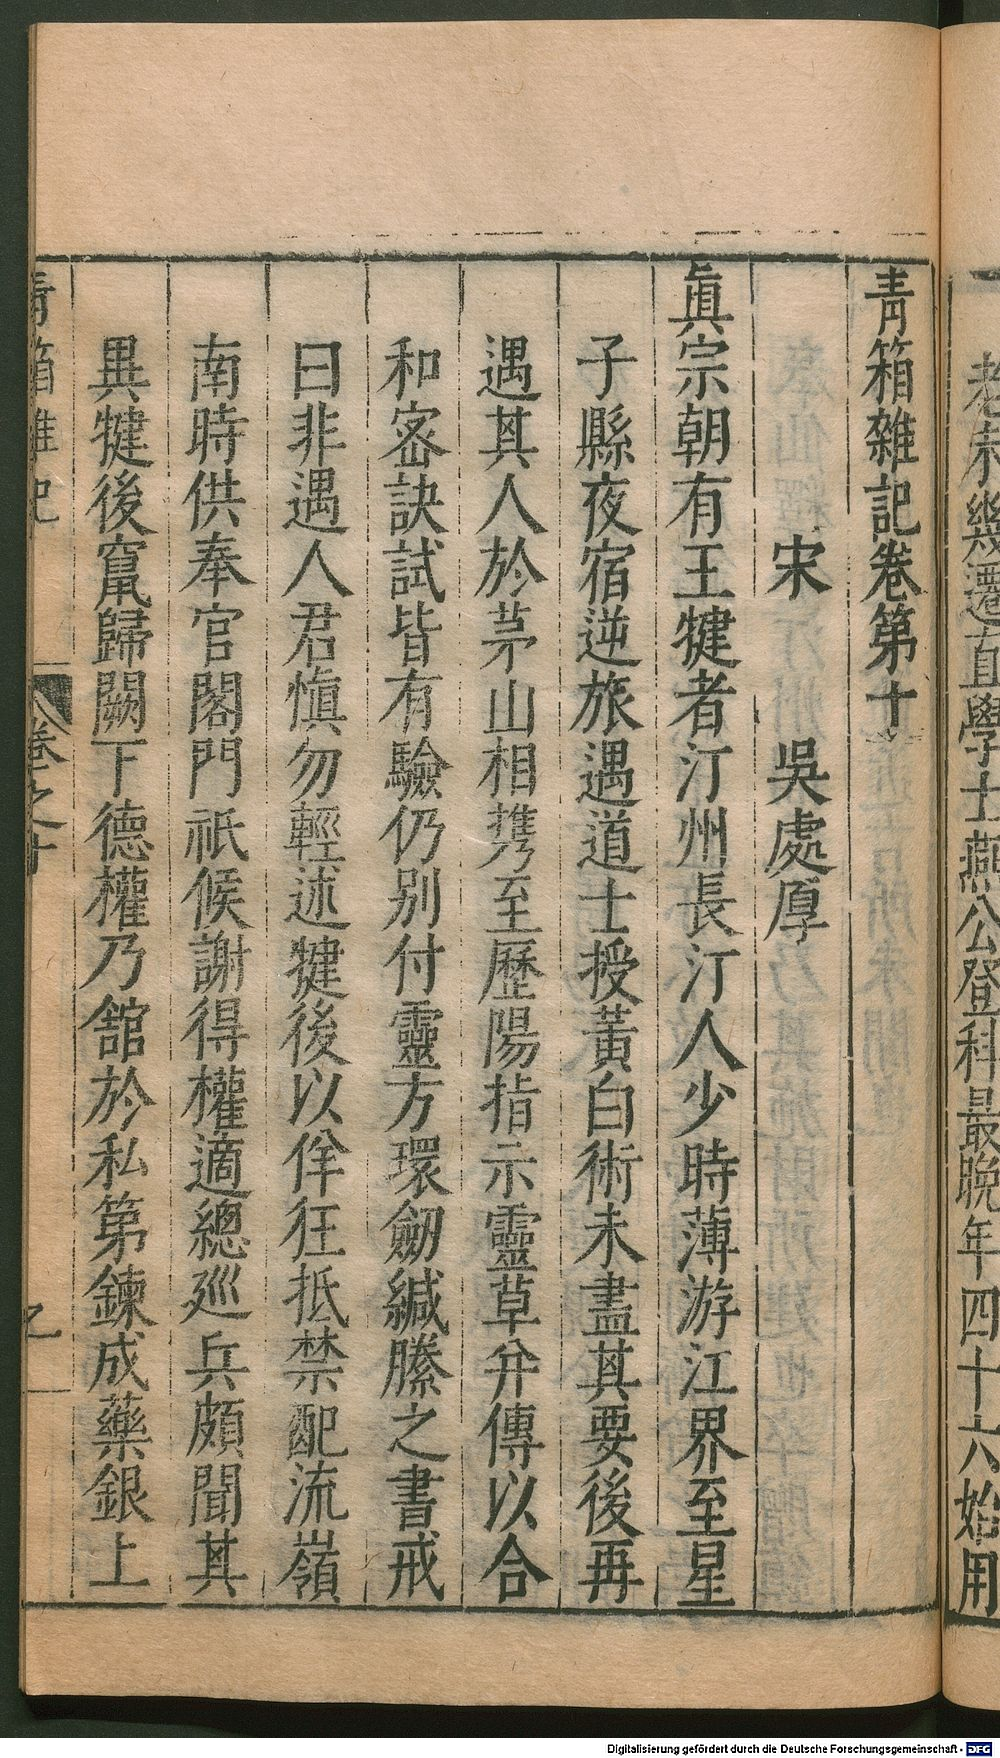 老亦幾遷直學士燕公登科最晚年四十六始用
青箱雜記卷第十
宋 吳處厚
眞宗朝有王犍者汀州長汀人少時薄游江界至星
子縣夜宿逆旅遇道士授黃白術未盡其要後再
遇其人於茅山相携至歷陽指示靈草幷傳以合
和密訣試皆有驗仍别付靈方環劒緘縢之書戒
曰非遇人君愼勿輕述犍後以佯狂抵禁配流嶺
南時供奉官閤門祇候謝得權適總廵兵頗聞其
異犍後竄歸闕下德權乃舘於私第鍊成藥銀上
青箱雜記 卷之十
Digitalisierung gefördert durch die Deutsche Forschungsgemeinschaft - DFG